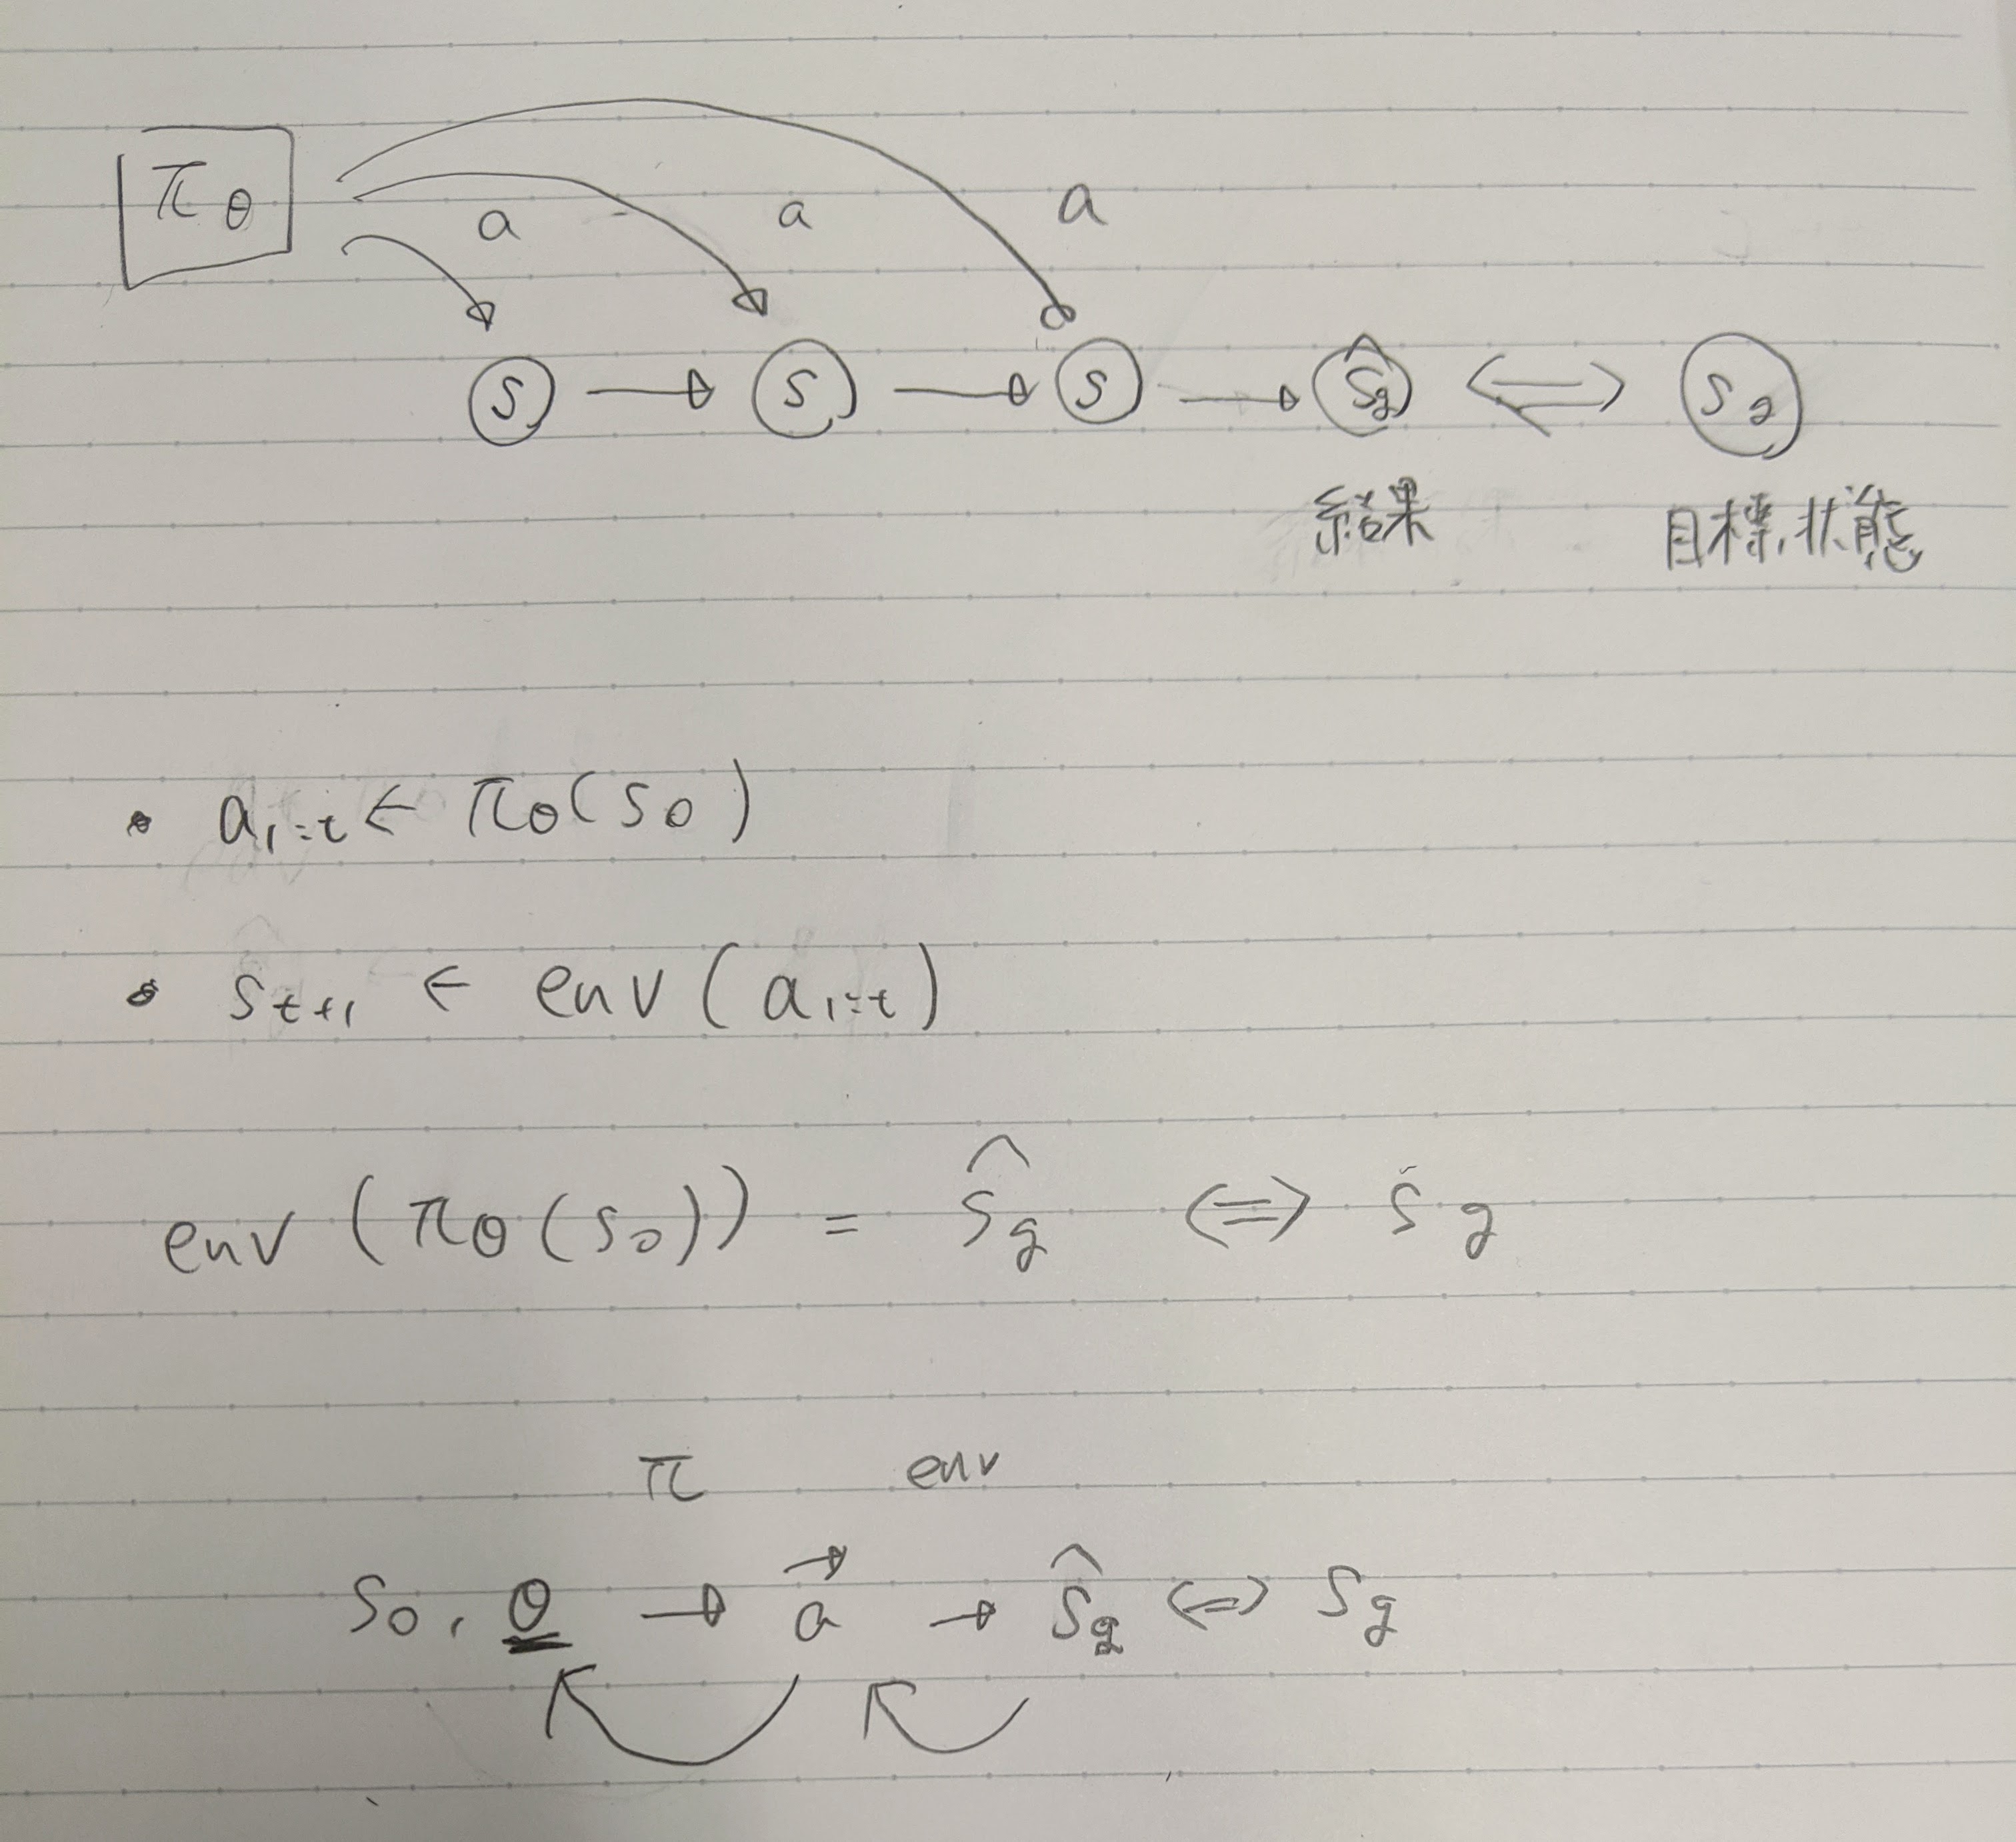 πθ
a a a
s → s → s → ŝg ⇔ sg
結果 目標状態
• a1:t ← πθ(s0)
• st+1 ← env(a1:t)
env(πθ(s0)) = ŝg ⇔ sg
π env
s0, θ → a⃗ → ŝg ⇔ sg